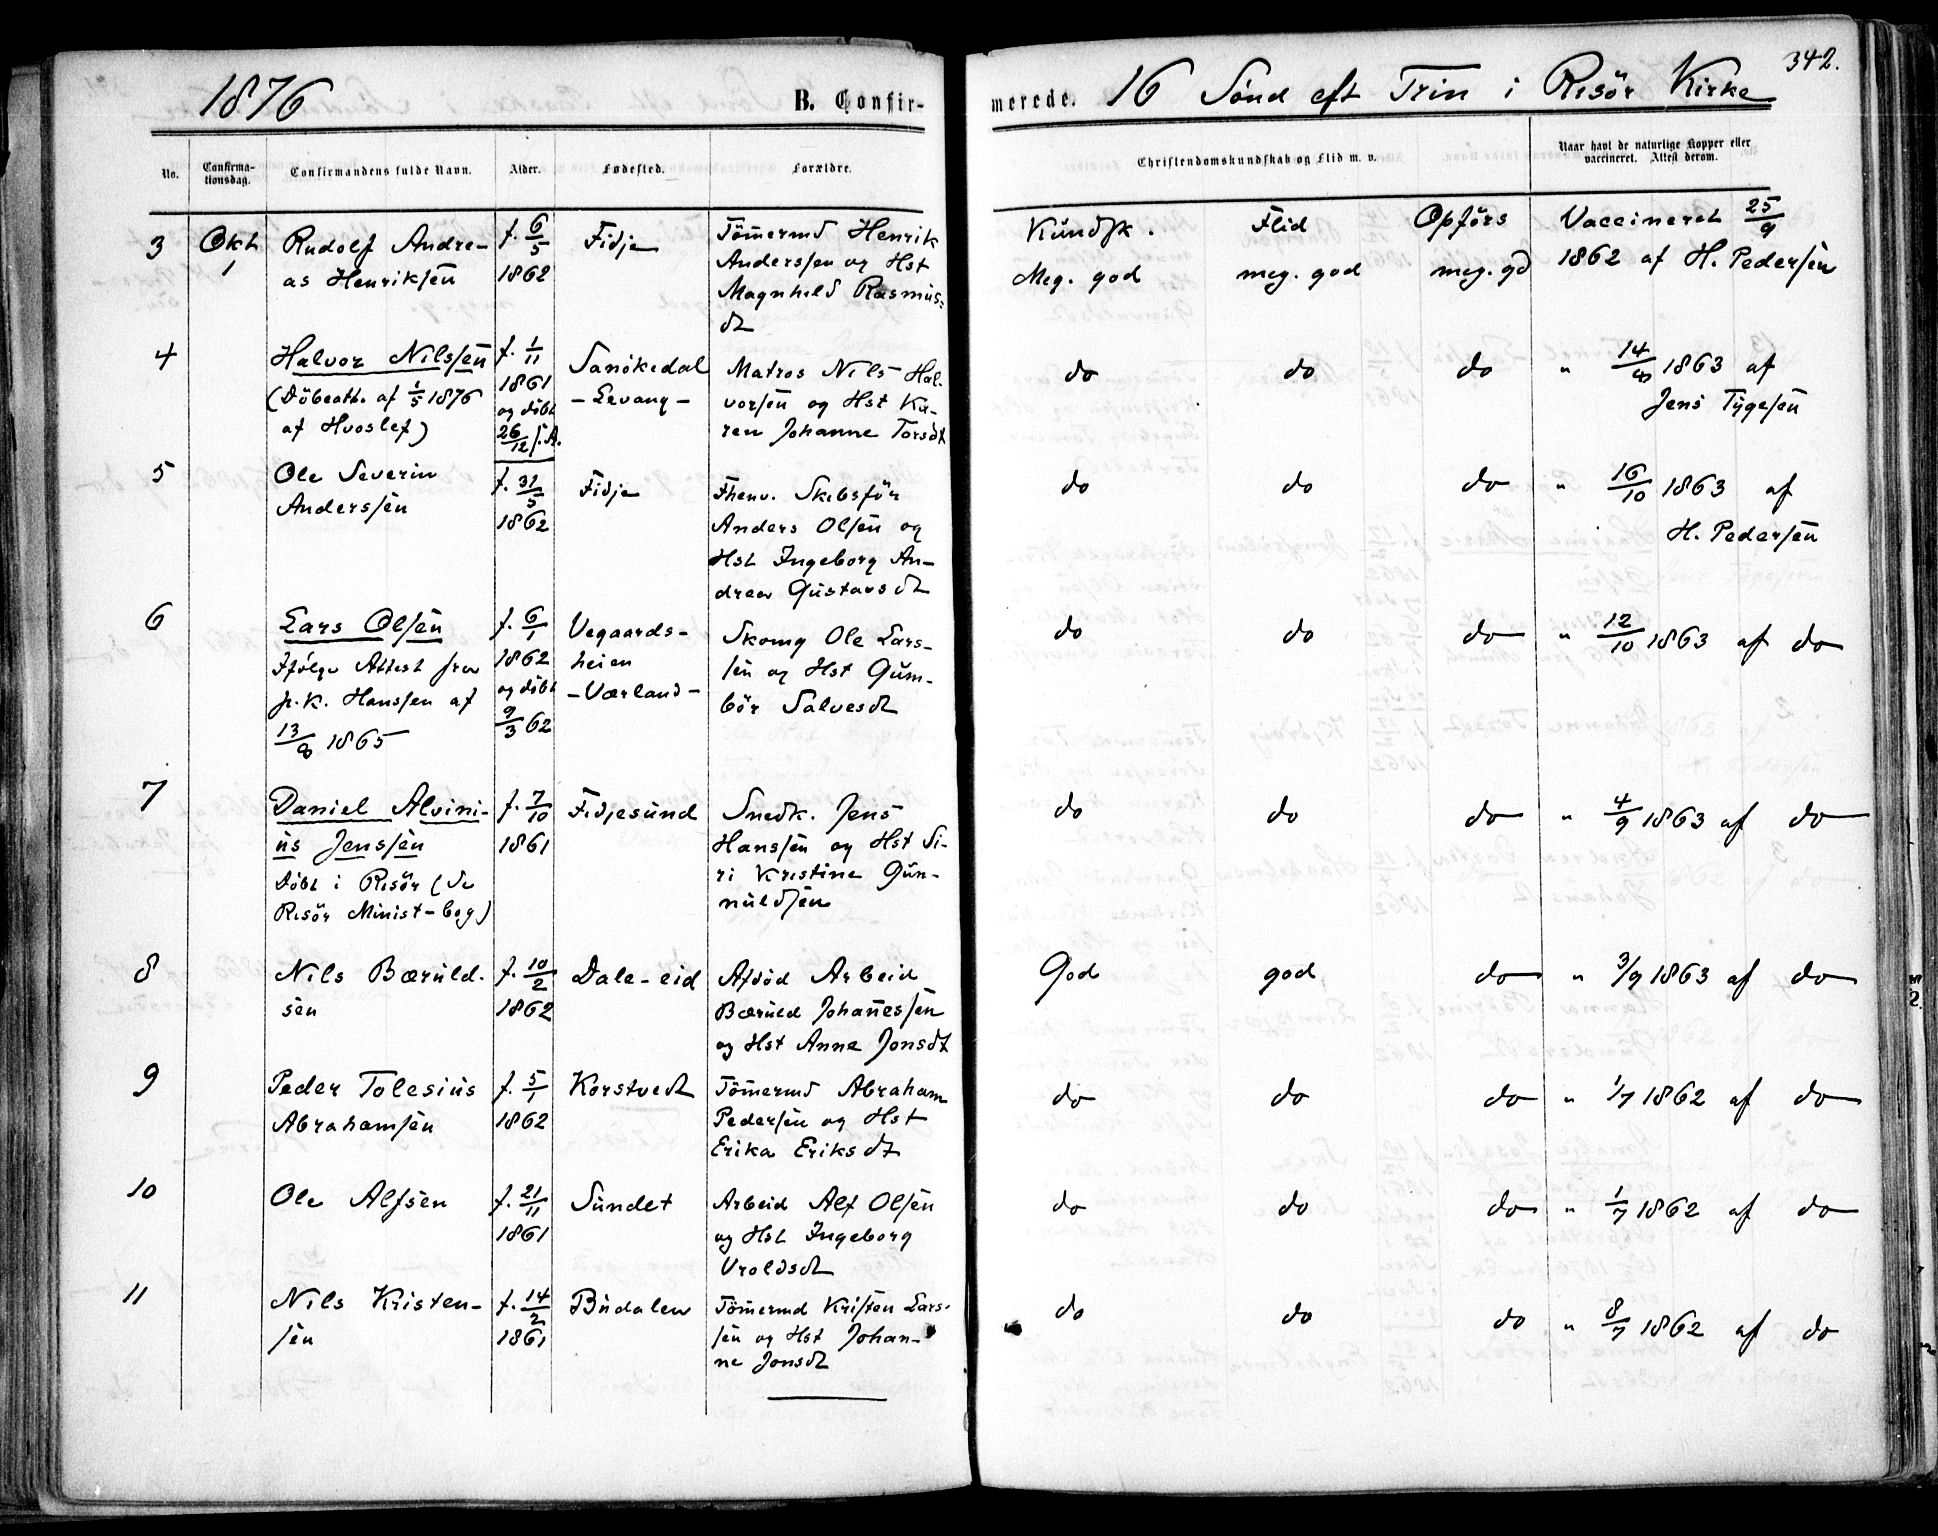 1876 B. Confir-
merede. 16 Sönd eft Trin i Risör Kirke
342.
No. Confirma-tionsdag. Confirmandens fulde Navn. Alder. Fødested. Forældre.
Christendomskundskab og Flid m. v. Naar havt de naturlige Kopper eller vaccineret. Attest derom.
3 Okt 1
Rudolf Andre-
as Henriksen
f. 6/5
1862
Fidje
Tömermd Henrik
Anderssen og Hst
Magnhild Rasmus-
dt
Kundsk. Flid Opförs
Meg. god meg. god meg. gd
Vaccineret 25/9
1862 af H. Pedersen
4
Halvor Nilssen
(Döbeatt. af 1/5 1876
af Hvoslef)
f. 1/11
1861
og döbt
26/12 s. A.
Sanökedal
- Levang -
Matros Nils Hal-
vorsen og Hst Ka-
ren Johanne Torsdt
do do do
" 14/10 1863 af
Jens Tygesen
5
Ole Severin
Anderssen
f. 31/5
1862
Fidje
Fhenv. Skibsför
Anders Olsen og
Hst Ingeborg An-
drea Gustavsdt
do do do
" 16/10 1863 af
H. Pedersen
6
Lars Olsen
Ifölge Attest fra
p.K. Hanssen af
13/8 1865
f. 6/1
1862
og döbt
9/3 62
Vegaards-
heien
- Værland -
Skomg Ole Lars-
sen og Hst Gum-
bör Salvesdt
do do do
" 12/10 1863 af do
7
Daniel Alvini-
us Jenssen
Döbt i Risör (Se
Risör Minist-bog)
f. 7/10
1861
Fidjesund
Snedk. Jens
Hanssen og Hst Si-
ri Kristine Gun-
nuldsen
do do do
" 4/9 1863 af do
8
Nils Bæruld-
sen
f. 10/2
1862
Dale-eid
Afdöd Arbeid
Bæruld Johanessen
og Hst Anne Jonsdt
God god do
" 3/9 1863 af do
9
Peder Tolesius
Abrahamsen
f. 5/1
1862
Korstvedt
Tömermd Abraham
Pedersen og Hst
Erika Eriksdt
do do do
" 1/7 1862 af do
10
Ole Alfsen
f. 21/11
1861
Sundet
Arbeid Alf Olsen
og Hst Ingeborg
Uroldsdt
do do do
" 1/7 1862 af do
11
Nils Kristen-
sen
f. 14/2
1861
Budalen
Tömermd Kristen Lars-
sen og Hst Johan-
ne Jonsdt
do do do
" 8/7 1862 af do